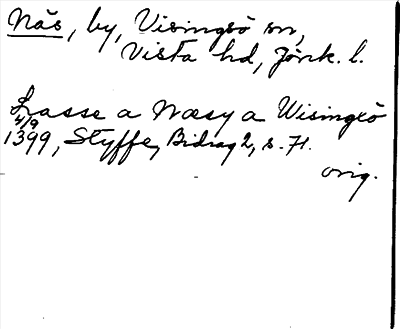 Näs, by, Visingsö sn,
Vista hd, Jönk. l.
Lasse a Næsy a Wisingsö
4/9
1399, Styffe, Bidrag 2, s. 71.
orig.